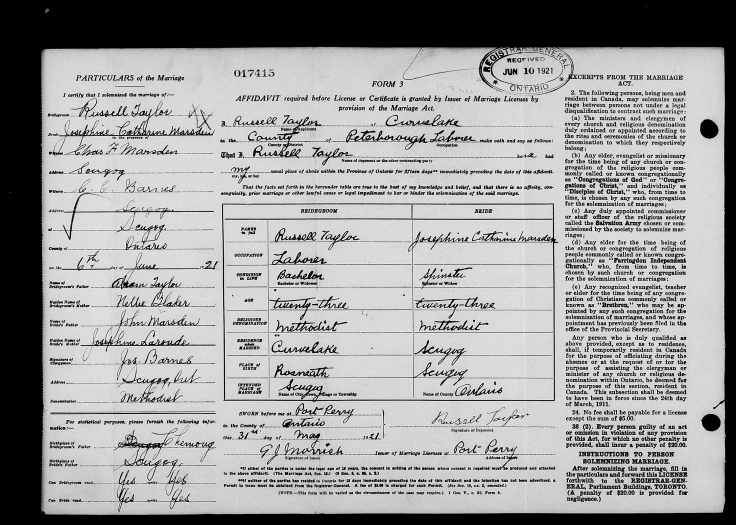 PARTICULARS of the Marriage
I certify that I solemnized the marriage of:—
Bridegroom Russell Taylor
Josephine Catherine Marsden
Witness Chas F Marsden
Address Scugog
Witness C. E. Barnes
Address Scugog
at Scugog
County of Ontario
on the 6th June 21
Name of Bridegroom's Father Taylor
Maiden Name of Bridegroom's Mother Nellie Blaker
Name of Bride's Father John Marsden
Maiden Name of Bride's Mother Josephine Laroude
Signature of Clergyman Jos Barnes
Address Scugog, Ont
Denomination Methodist
For statistical purposes, please furnish the following information:—
Birthplace of Bridegroom's Father
Birthplace of Bride's Father Scugog
Can Bridegroom read Yes Yes
Can Bride read Yes Yes
017415
FORM 3
REGISTRAR GENERAL
RECEIVED
JUN 10 1921
ONTARIO
AFFIDAVIT required before License or Certificate is granted by Issuer of Marriage Licenses by
provision of the Marriage Act.
I, Russell Taylor of Curvelake
in the County of Peterborough Laborer make oath and say as follows:
That I Russell Taylor
my usual place of abode within the Province of Ontario for fifteen days immediately preceding the date of this affidavit.
That the facts set forth in the hereunder table are true to the best of my knowledge and belief, and that there is no affinity, consanguinity, prior marriage or other lawful cause or legal impediment to bar or hinder the solemnization of the said marriage.
BRIDEGROOM BRIDE
NAMES in full Russell Taylor Josephine Catherine Marsden
OCCUPATION Laborer
CONDITION IN LIFE Bachelor Spinster
Bachelor or Widower Spinster or Widow
AGE twenty-three twenty-three
RELIGIOUS DENOMINATION Methodist Methodist
RESIDENCE when MARRIED Curvelake Scugog
PLACE OF BIRTH Roseneath Scugog
INTENDED PLACE of MARRIAGE Scugog Name of County Ontario
SWORN before me at Port Perry
in the County of Ontario
this 31st day of May 1921
Russell Taylor
Signature of Deponent
G J Morrish Issuer of Marriage Licenses at Port Perry
Signature of Issuer Address of Issuer
EXCERPTS FROM THE MARRIAGE ACT.
2. The following persons, being men and resident in Canada, may solemnize marriage between persons not under a legal disqualification to contract such marriage:
(a) The ministers and clergymen of every church and religious denomination duly ordained or appointed according to the rites and ceremonies of the church or denomination to which they respectively belong;
(b) Any elder, evangelist or missionary for the time being of any church or congregation of the religious people commonly called or known congregationally as "Congregations of God" or "Congregations of Christ," and individually as "Disciples of Christ," who, from time to time, is chosen by any such congregation for the solemnization of marriages;
(c) Any duly appointed commissioner or staff officer of the religious society called the Salvation Army chosen or commissioned by the society to solemnize marriages;
(d) Any elder for the time being of the church or congregation of religious people commonly called or known congregationally as "Farringdon Independent Church," who, from time to time, is chosen by such church or congregation for the solemnization of marriages;
(e) Any recognized evangelist, teacher or elder for the time being of any congregation of Christians commonly called or known as "Brethren," who may be appointed by any such congregation for the solemnization of marriages, and whose appointment has previously been filed in the office of the Provincial Secretary.
Any person who is duly qualified as above provided, except as to residence, shall, if temporarily resident in Canada for the purpose of officiating during the absence or at the request of or for the purpose of assisting the clergyman or minister of any church or religious denomination within Ontario, be deemed for the purpose of this section, resident in Canada. This subsection shall be deemed to have been in force since the 24th day of March, 1911.
24. No fee shall be payable for a license except the sum of $5.00.
38 (2). Every person guilty of an act or omission in violation of any provision of this Act, for which no other penalty is provided, shall incur a penalty of $20.00.
INSTRUCTIONS TO PERSON SOLEMNIZING MARRIAGE.
After solemnizing the marriage, fill in the particulars and forward this LICENSE forthwith to the REGISTRAR-GENERAL, Parliament Buildings, TORONTO. (A penalty of $20.00 is provided for negligence.)